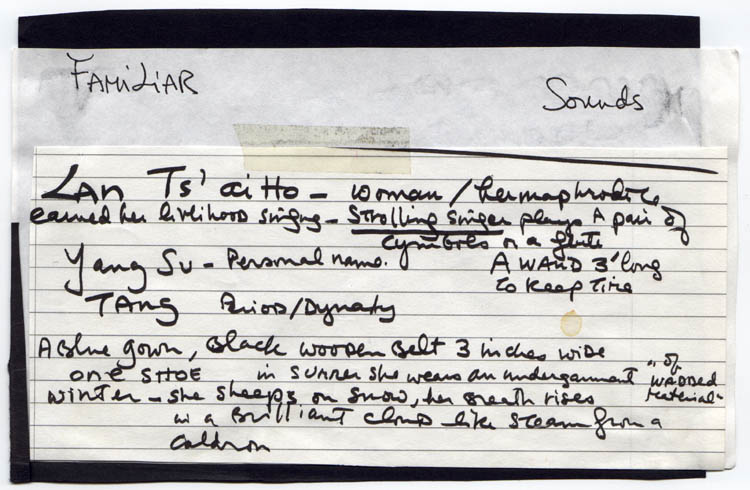 FAMiLiAR
Sounds
LAn Ts' ai Ho – woman / hermaphrodite
earned her livlihood singing – Strolling singer plays A pair of
cymbols or a flute
Yang Su – Personal name.
A WAND 3' long
to keep time
TAng Period/Dynasty
A Blue gown, Black wooden Belt 3 inches wide
ONE SHOE in summer she wears an undergarment "of
WADDED
Material"
Winter – she sleeps on snow, her breath rises
in a Brilliant cloud like steam from a
caldron